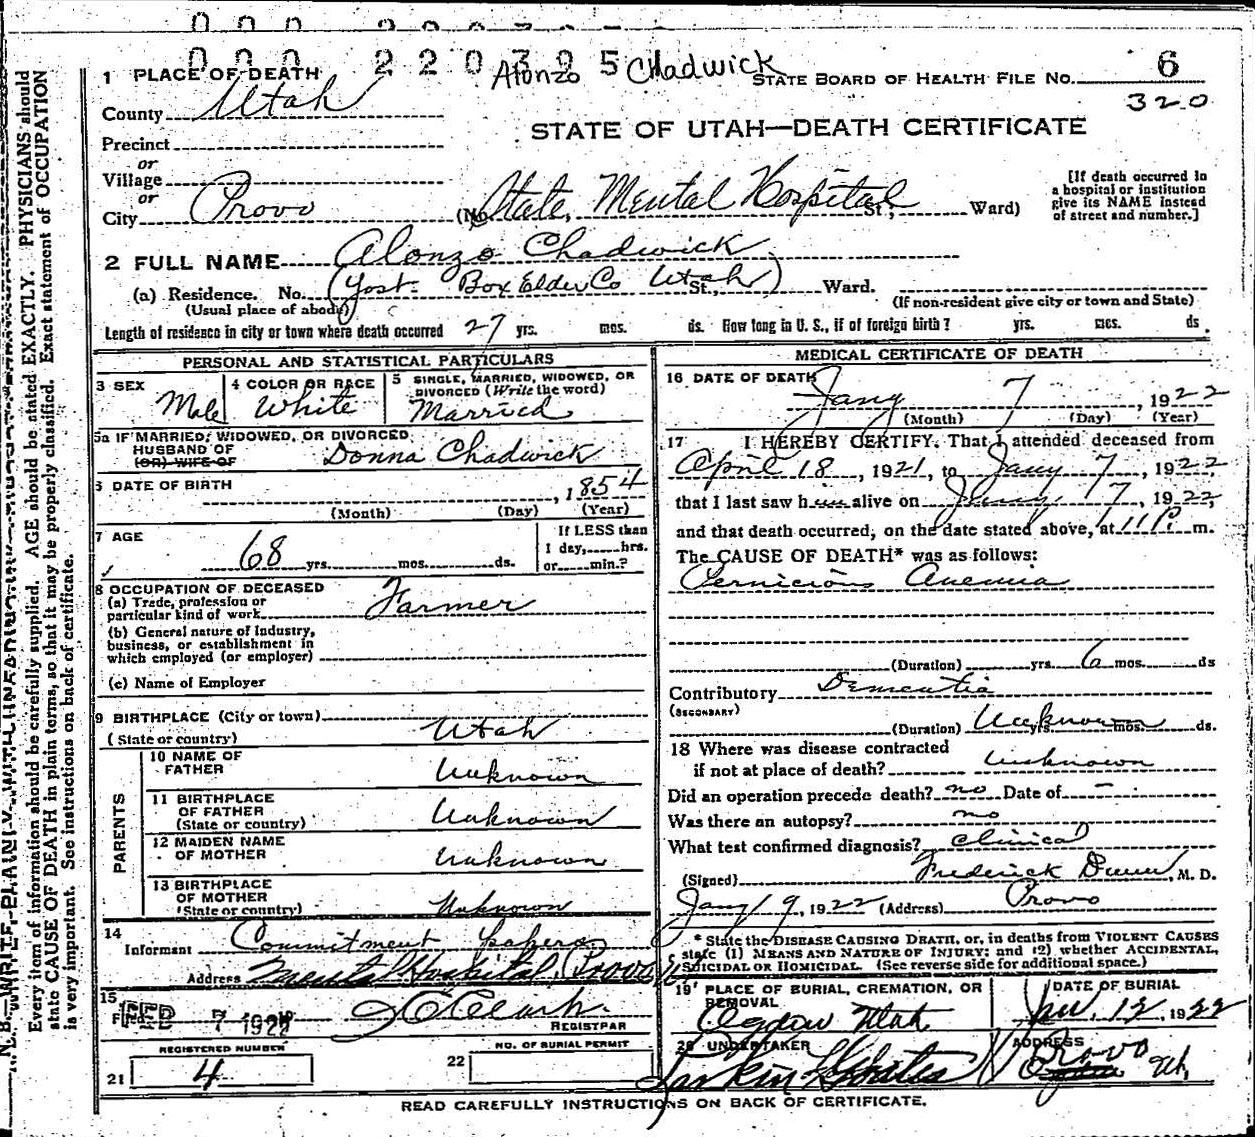 000 220395
Alonzo Chadwick
1 PLACE OF DEATH
STATE BOARD OF HEALTH FILE NO. 6
County Utah
320
STATE OF UTAH—DEATH CERTIFICATE
Precinct
or
Village
or
City Provo (No. State Mental Hospital St., Ward)
[If death occurred in a hospital or institution give its NAME instead of street and number.]
2 FULL NAME Alonzo Chadwick
(a) Residence. No. (Yost Box Elder Co Utah) St., Ward.
(Usual place of abode)
(If non-resident give city or town and State)
Length of residence in city or town where death occurred 27 yrs. mos. ds. How long in U. S., if of foreign birth? yrs. mos. ds.
PERSONAL AND STATISTICAL PARTICULARS
3 SEX Male
4 COLOR OR RACE White
5 SINGLE, MARRIED, WIDOWED, OR DIVORCED (Write the word) Married
5a IF MARRIED, WIDOWED, OR DIVORCED
HUSBAND OF
(OR) WIFE OF
Donna Chadwick
6 DATE OF BIRTH , 1854
(Month) (Day) (Year)
7 AGE
68 yrs. mos. ds.
If LESS than 1 day, hrs. or min.?
8 OCCUPATION OF DECEASED
(a) Trade, profession or particular kind of work Farmer
(b) General nature of industry, business, or establishment in which employed (or employer)
(c) Name of Employer
9 BIRTHPLACE (City or town)
(State or country) Utah
PARENTS
10 NAME OF FATHER Unknown
11 BIRTHPLACE OF FATHER (State or country) Unknown
12 MAIDEN NAME OF MOTHER Unknown
13 BIRTHPLACE OF MOTHER (State or country) Unknown
14 Informant Commitment papers
Address Mental Hospital, Provo
15 FEB 7 1922
REGISTRAR
REGISTERED NUMBER
21 4
22 NO. OF BURIAL PERMIT
MEDICAL CERTIFICATE OF DEATH
16 DATE OF DEATH
Jany 7, 1922
(Month) (Day) (Year)
17 I HEREBY CERTIFY, That I attended deceased from
April 18, 1921, to Jany 7, 1922,
that I last saw him alive on Jany. 7, 1922,
and that death occurred, on the date stated above, at 11 P. m.
The CAUSE OF DEATH* was as follows:
Pernicious Anemia
(Duration) yrs. 6 mos. ds
Contributory Dementia
(SECONDARY)
(Duration) Unknown yrs. mos. ds.
18 Where was disease contracted
if not at place of death? unknown
Did an operation precede death? no Date of –
Was there an autopsy? no
What test confirmed diagnosis? Clinical
(Signed) Frederick Dunn, M. D.
Jany 9, 1922 (Address) Provo
* State the DISEASE CAUSING DEATH, or, in deaths from VIOLENT CAUSES
state (1) MEANS AND NATURE OF INJURY; and (2) whether ACCIDENTAL,
SUICIDAL or HOMICIDAL. (See reverse side for additional space.)
19 PLACE OF BURIAL, CREMATION, OR REMOVAL
Ogden Utah
DATE OF BURIAL
Jan. 12, 1922
20 UNDERTAKER
Larkin
ADDRESS
Provo Ut,
READ CAREFULLY INSTRUCTIONS ON BACK OF CERTIFICATE.
Every item of information should be carefully supplied. AGE should be stated EXACTLY. PHYSICIANS should
state CAUSE OF DEATH in plain terms, so that it may be properly classified. Exact statement of OCCUPATION
is very important. See instructions on back of certificate.